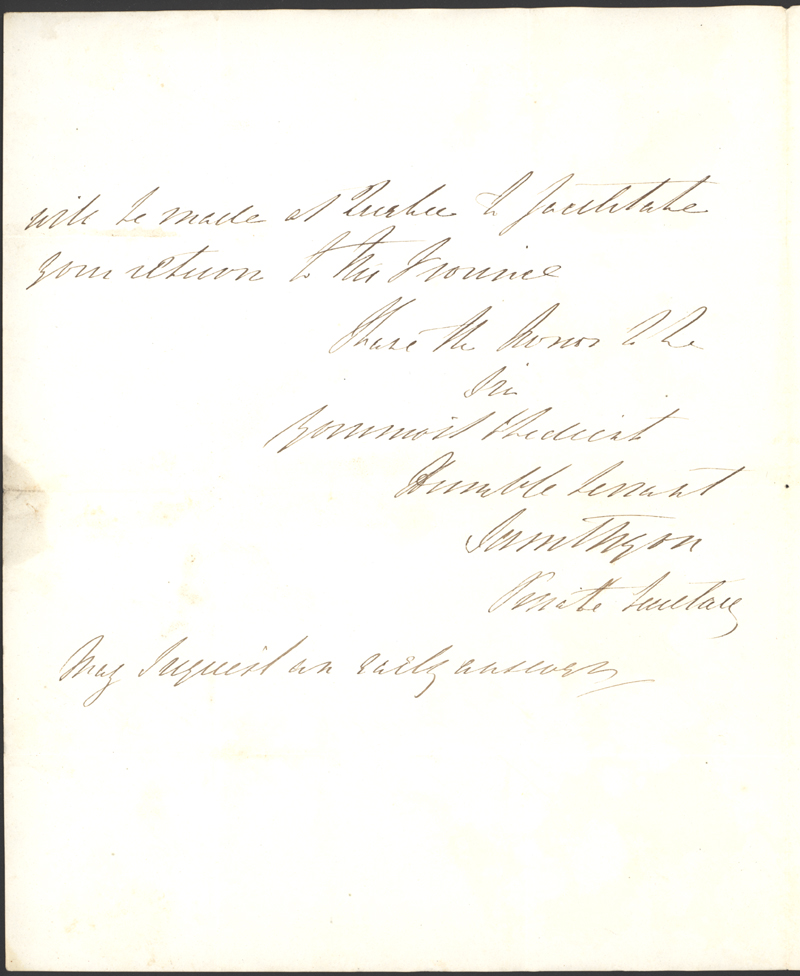 will be made at Quebec to facilitate
your return to the Province
I have the honor to be
Sir
Your most obedient
Humble Servant
Private Secretary
May I request an early answer